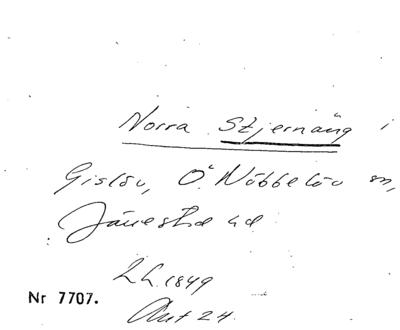 Norra Stjernäng i
Gislöv, Ö. Nöbbelöv sn,
Järrestad hd
Lh. 1849
Nr 7707.
Akt 24.